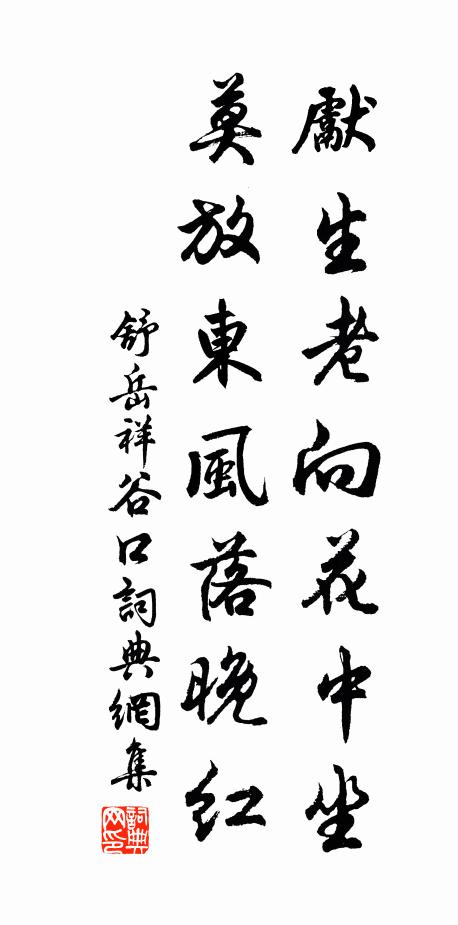 獻生老向花中坐
莫放東風落晚紅
舒岳祥谷口詞典網集
詞典网印